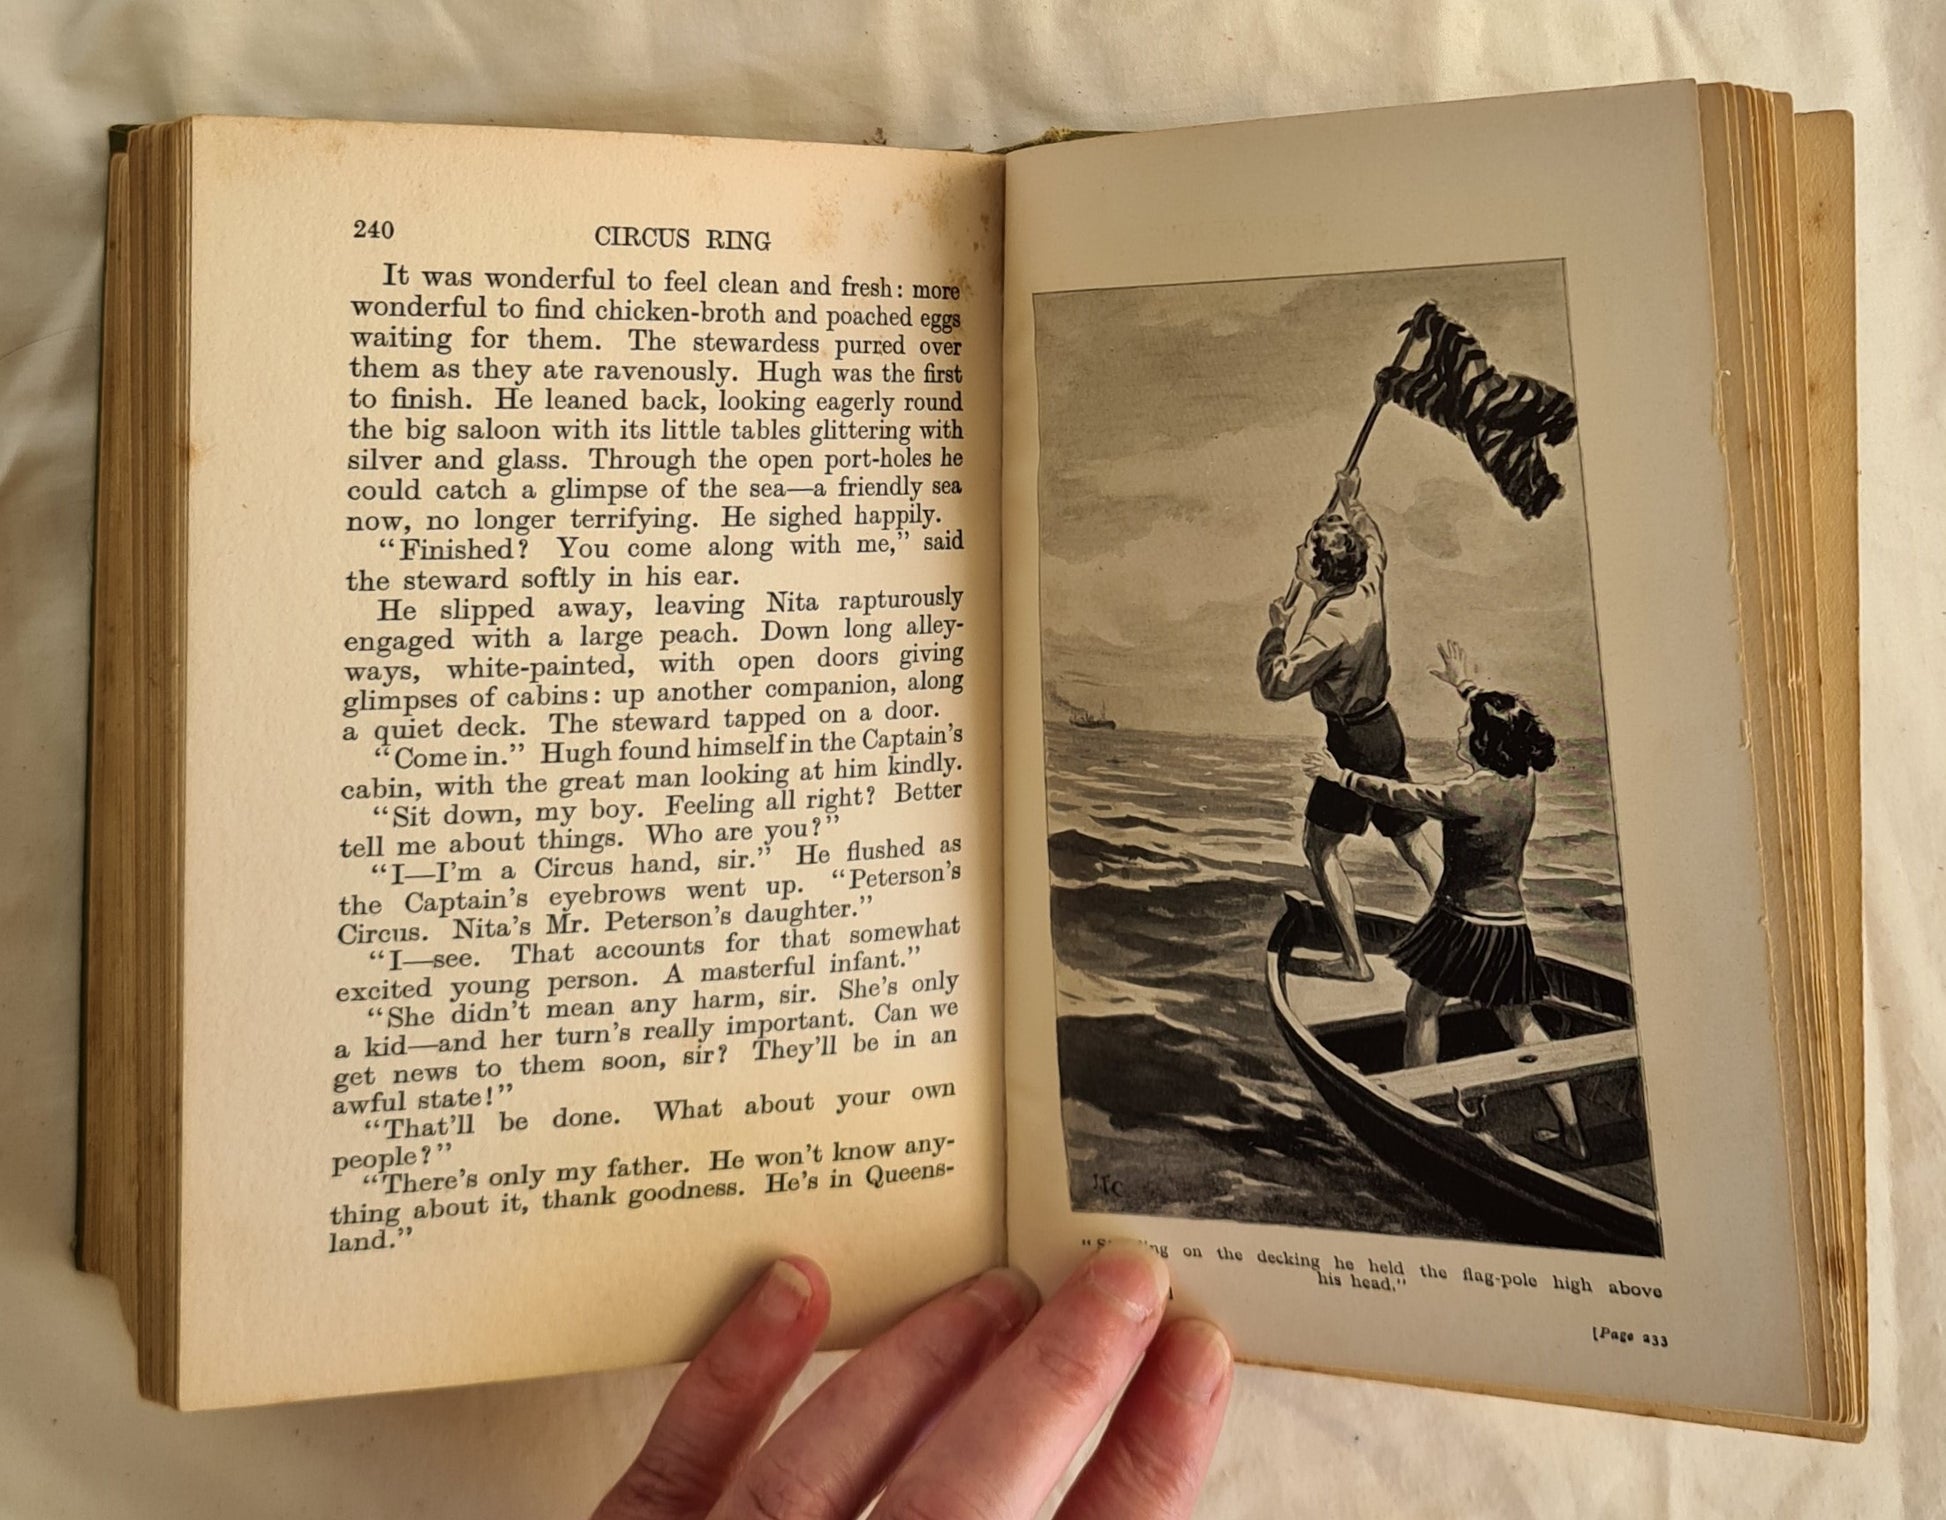 240
CIRCUS RING
It was wonderful to feel clean and fresh: more
wonderful to find chicken-broth and poached eggs
waiting for them. The stewardess purred over
them as they ate ravenously. Hugh was the first
to finish. He leaned back, looking eagerly round
the big saloon with its little tables glittering with
silver and glass. Through the open port-holes he
could catch a glimpse of the sea—a friendly sea
now, no longer terrifying. He sighed happily.
“Finished? You come along with me,” said
the steward softly in his ear.
He slipped away, leaving Nita rapturously
engaged with a large peach. Down long alley-
ways, white-painted, with open doors giving
glimpses of cabins: up another companion, along
a quiet deck. The steward tapped on a door.
“Come in.” Hugh found himself in the Captain’s
cabin, with the great man looking at him kindly.
“Sit down, my boy. Feeling all right? Better
tell me about things. Who are you?”
“I—I’m a Circus hand, sir.” He flushed as
the Captain’s eyebrows went up. “Peterson’s
Circus. Nita’s Mr. Peterson’s daughter.”
“I—see. That accounts for that somewhat
excited young person. A masterful infant.”
“She didn’t mean any harm, sir. She’s only
a kid—and her turn’s really important. Can we
get news to them soon, sir? They’ll be in an
awful state!”
“That’ll be done. What about your own
people?”
“There’s only my father. He won’t know any-
thing about it, thank goodness. He’s in Queens-
land.”
on the decking he held the flag-pole high above
his head.”
[Page 233